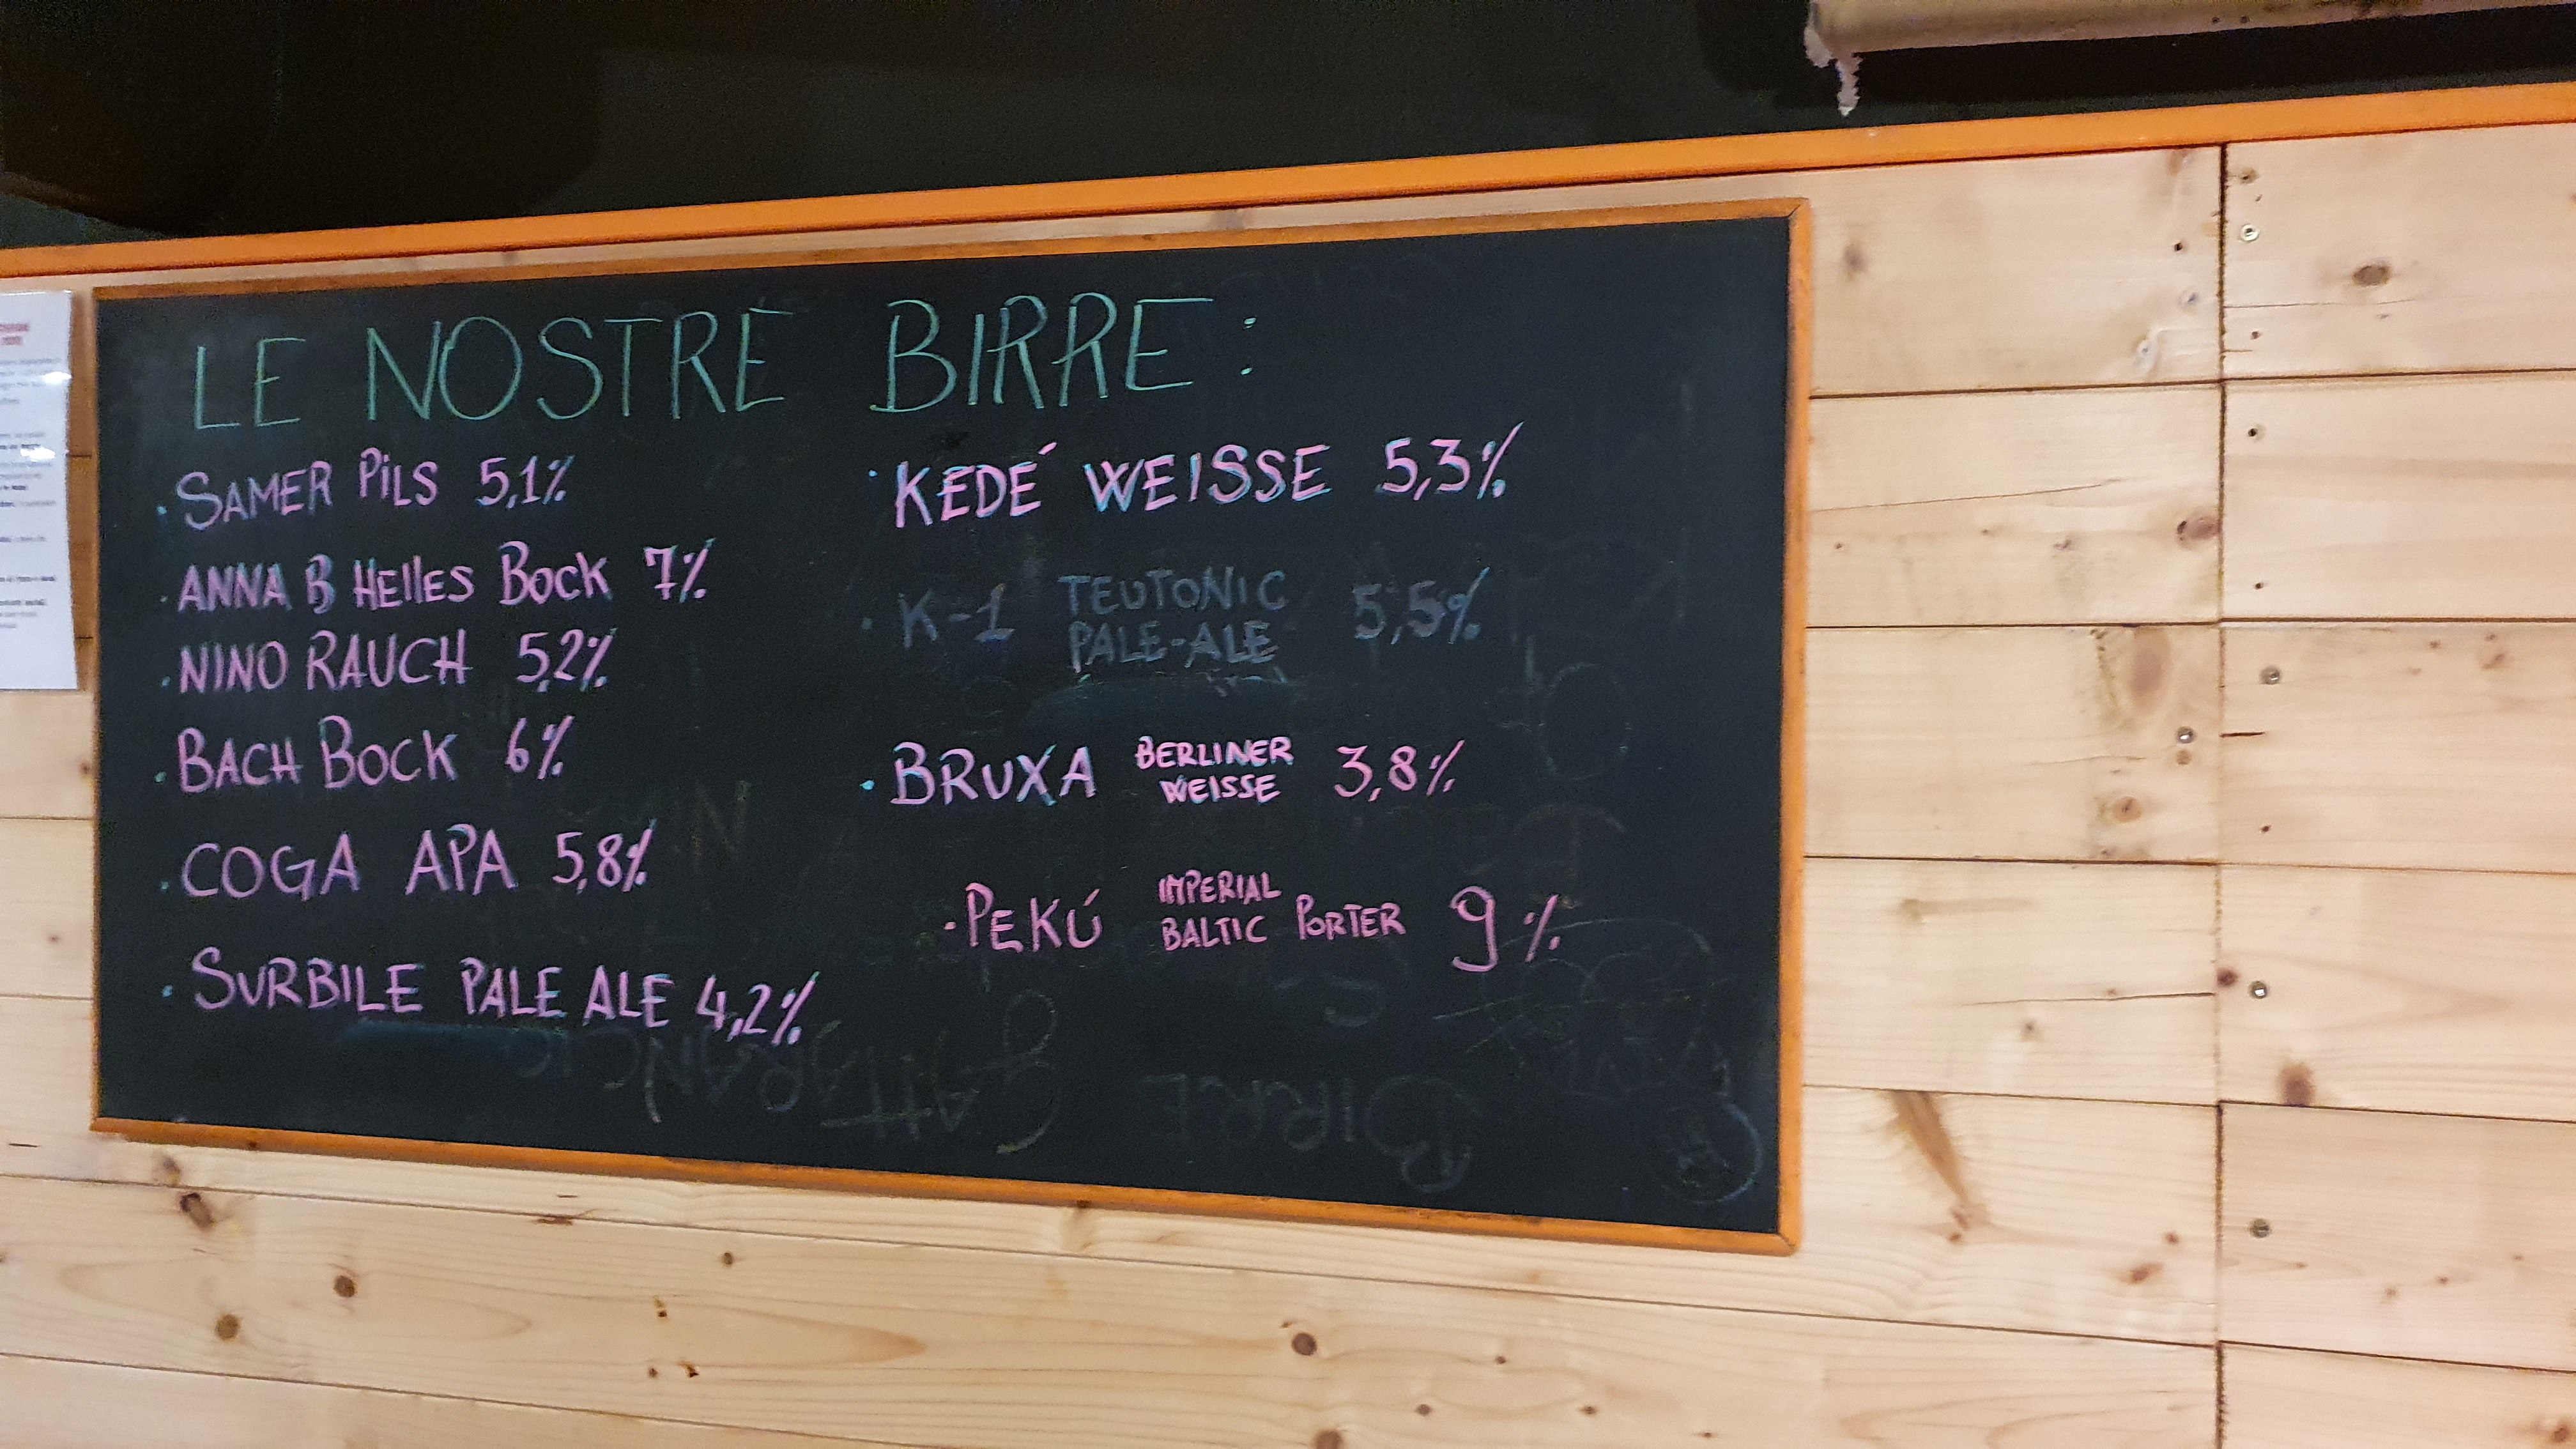 LE NOSTRE BIRRE:
· SAMER PILS 5,1%
· ANNA B HELLES BOCK 7%
· NINO RAUCH 5,2%
· BACH BOCK 6%
· COGA APA 5,8%
· SURBILE PALE ALE 4,2%
· KEDÉ WEISSE 5,3%
· K-1 TEUTONIC
PALE-ALE 5,5%
· BRUXA BERLINER
WEISSE 3,8%
· PEKÚ IMPERIAL
BALTIC PORTER 9%
BIRRE